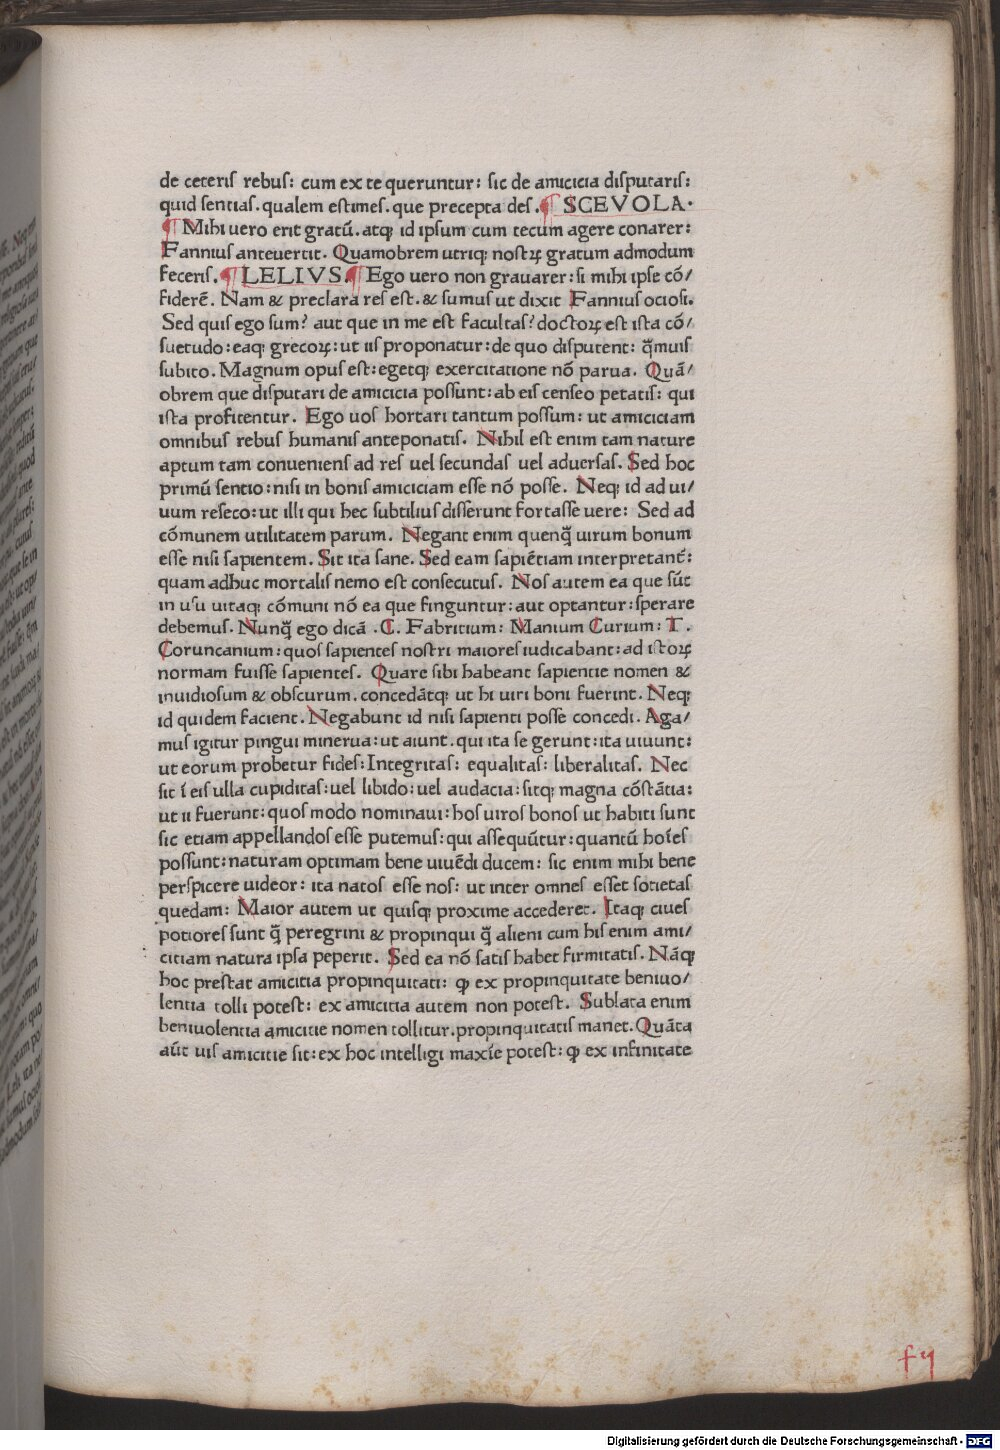 de ceteris rebus: cum ex te queruntur: sic de amicicia disputaris:
quid sentias. qualem estimes. que precepta des. ¶ SCEVOLA.
¶ Mihi uero erit gratũ. atqꝫ id ipsum cum tecum agere conarer:
Fannius anteuertit. Quamobrem utriqꝫ nostrꝝ gratum admodum
feceris. ¶ LELIVS. ¶ Ego uero non grauarer: si mihi ipse cõ/
fiderẽ. Nam & preclara res est. & sumus ut dixit Fannius ociosi.
Sed quis ego sum? aut que in me est facultas? doctoꝝ est ista cõ/
suetudo: eaqꝫ grecoꝝ: ut iis proponatur: de quo disputent: q̃muis
subito. Magnum opus est: egetqꝫ exercitatione nõ parua. Quã/
obrem que disputari de amicicia possunt: ab eis censeo petatis: qui
ista profitentur. Ego uos hortari tantum possum: ut amiciciam
omnibus rebus humanis anteponatis. Nihil est enim tam nature
aptum tam conueniens ad res uel secundas uel aduersas. Sed hoc
primũ sentio: nisi in bonis amiciciam esse nõ posse. Neqꝫ id ad ui/
uum reseco: ut illi qui hec subtilius disserunt fortasse uere: Sed ad
cõmunem utilitatem parum. Negant enim quenq̃ uirum bonum
esse nisi sapientem. Sit ita sane. Sed eam sapiẽtiam interpretant̃:
quam adhuc mortalis nemo est consecutus. Nos autem ea que sũt
in usu uitaqꝫ cõmuni nõ ea que finguntur: aut optantur: sperare
debemus. Nunq̃ ego dicã .C. Fabritium: Manium Curium: T.
Coruncanium: quos sapientes nostri maiores iudicabant: ad istoꝝ
normam fuisse sapientes. Quare sibi habeant sapientie nomen &
inuidiosum & obscurum. concedãtqꝫ ut hi uiri boni fuerint. Neqꝫ
id quidem facient. Negabunt id nisi sapienti posse concedi. Aga/
mus igitur pingui minerua: ut aiunt. qui ita se gerunt: ita uiuunt:
ut eorum probetur fides: Integritas: equalitas: liberalitas. Nec
sit ĩ eis ulla cupiditas: uel libido: uel audacia: sitqꝫ magna cõstãtia:
ut ii fuerunt: quos modo nominaui: hos uiros bonos ut habiti sunt
sic etiam appellandos esse putemus: qui assequũtur: quantũ hoı̃es
possunt: naturam optimam bene uiuẽdi ducem: sic enim mihi bene
perspicere uideor: ita natos esse nos: ut inter omnes esset sotietas
quedam: Maior autem ut quisqꝫ proxime accederet. Itaqꝫ ciues
potiores sunt q̃ peregrini & propinqui q̃ alieni cum his enim ami/
citiam natura ipsa peperit. Sed ea nõ satis habet firmitatis. Nãqꝫ
hoc prestat amicitia propinquitati: ꝙ ex propinquitate beniuo/
lentia tolli potest: ex amicitia autem non potest. Sublata enim
beniuolentia amicitie nomen tollitur. propinquitatis manet. Quãta
aũt uis amicitie sit: ex hoc intelligi maxı̃e potest: ꝙ ex infinitate
Digitalisierung gefördert durch die Deutsche Forschungsgemeinschaft - DFG